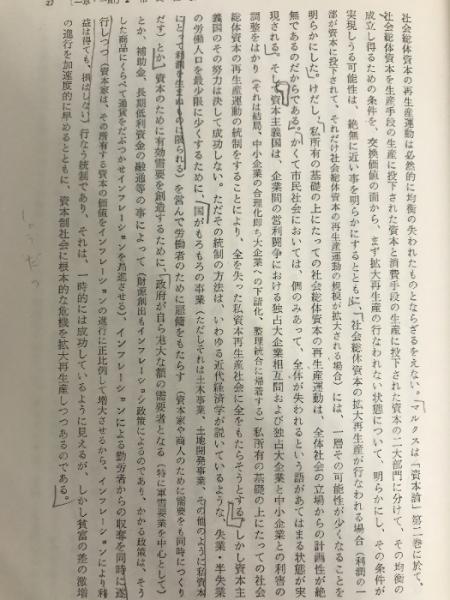 社会総体資本の再生産運動は必然的に均衡の失われたものとならざるをえない。「マルクスは『資本論』第二巻に於て、
社会総体資本を生産手段の生産に投下された資本と消費手段の生産に投下された資本の二大部門に分けて、その均衡の
成立し得るための条件を、交換価値の面から、まず拡大再生産の行なわれない状態について、明らかにし、その条件が
実現しうる可能性は、絶無に近い事を明らかにするとともに」、「社会総体資本の拡大再生産が行なわれる場合（利潤の一
部が資本に投下されて、それだけ社会総体資本の再生産運動の規模が拡大される場合）には、一層その可能性が少くなることを
明らかにした。けだし、「私所有の基礎の上にたっての社会総体資本の再生産運動は、全体社会の立場からの計画性が絶
無であるのだからである。」かくて市民社会においては、個のみあって、全体が失われるという語があてはまる状態が実
現される。そして資本主義国は、企業間の営利競争における独占大企業相互間および独占大企業と中小企業との利害の
調整をはかり（それは結局、中小企業の合理化即ち大企業への下請化、整理統合に帰着する）私所有の基礎の上にたっての社会
総体資本の再生産運動の統制をすることにより、全を失った私資本再生産社会に全をもたらそうとする。」しかし資本主
義国のその努力は決して成功しない。ただその統制の方法は、いわゆる近代経済学が説いているような、失業・半失業
の労働人口を最少限に少くするために、「国がもろもろの事業（ただしそれは土木事業、土地開発事業、その他のように私資本
にとって利潤を生まぬものに限られる）を営んで労働者のために雇傭をもたらす（資本家や商人のために需要をも同時につくり
だす）とか」資本のために有効需要を創造するために、「政府が自ら尨大な額の需要者となる（特に軍需産業を中心として）
とか、補助金、長期低利資金の融通等の事によって（財源創出もインフレーション政策によるのであり、かかる政策は、そう
した商品にくらべて通貨をだぶつかせインフレーションを昂進させる）、インフレーションによる勤労者からの収奪を同時に遂
行しつつ（資本家は、その所有する資本の価値をインフレーションの進行に正比例して増大させるから、インフレーションにより利
益は得ても、損はしない）行なう統制であり、それは、一時的には成功しているように見えるが、しかし貧富の差の激増
の進行を加速度的に早めるとともに、資本制社会に根本的な危機を拡大再生産しつつあるのである。」